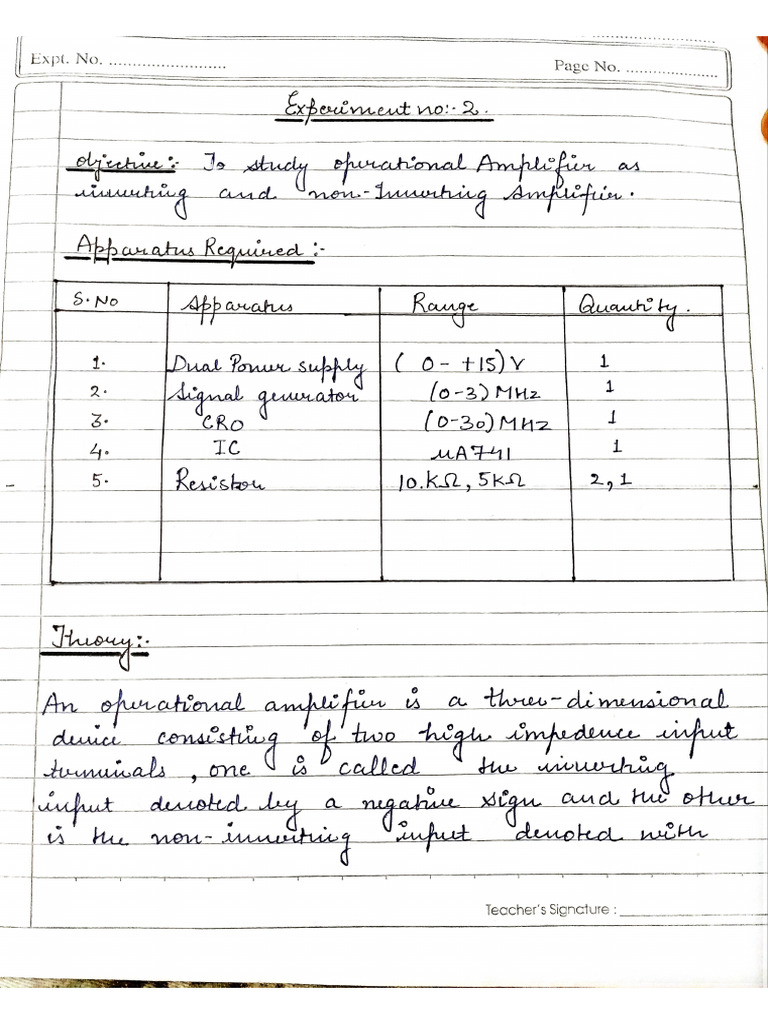 Expt. No. ..........................
Page No. ....................
Experiment no:- 2.
Objective:- To study operational Amplifier as
inverting and non-Inverting Amplifier.
Apparatus Required :-
S.No Apparatus Range Quantity.
1. Dual Power supply ( 0 - +15) V 1
2. Signal generator (0-3) MHz 1
3. CRO (0-30) MHz 1
4. IC µA741 1
5. Resistor 10.KΩ, 5KΩ 2, 1
Theory:-
An operational amplifier is a three-dimensional
device consisting of two high impedence input
terminals, one is called the inverting
input denoted by a negative sign and the other
is the non-inverting input denoted with
Teacher's Signature : ______________